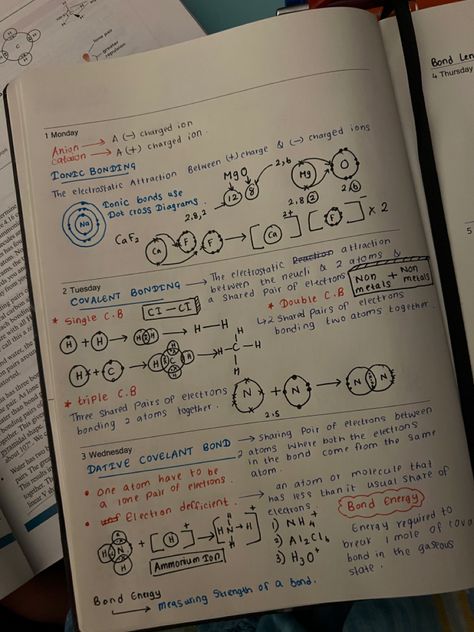 lone pair
greater
repulsion
Bond Len
4 Thursday
5
1 Monday
Anion → A (-) charged ion
Cataion → A (+) charged ion.
IONIC BONDING
The electrostatic Attraction Between (+) charge & (-) charged ions
Na
Ionic bonds use
Dot cross Diagrams.
MgO
2,6
12 8
2,8,2
Mg O
2.8.2 2.6
CaF2
Ca F F → [Ca]2+ [F]- x 2
2 Tuesday
COVALENT BONDING → The electrostatic attraction
between the neucli & 2 atoms &
a shared pair of electrons
Non metals + Non metals
* Single C.B
Cl — Cl
* Double C.B
↳ 2 Shared Pairs of electrons
bonding two atoms together.
H + H → H H → H — H
H + C → H C H → H — C — H
* triple C.B
Three Shared Pairs of electrons
bonding 2 atoms together.
N + N → N N
2.5
3 Wednesday
DATIVE COVELANT BOND → Sharing Pair of electrons between
2 atoms where both the electrons
in the bond come from the same
atom.
• One atom have to be
a lone pair of elecrons.
• Electron defficient. → an atom or molecule that
has less than it usual share of
electrons
H N H H + [H]+ → [H N → H]+
H H
Ammonium Ion
1) NH4+
2) Al2Cl6
3) H3O+
Bond Energy
Energy required to
break 1 mole of
bond in the gaseous
state.
Bond Energy
↳ Measuring Strength of a bond.